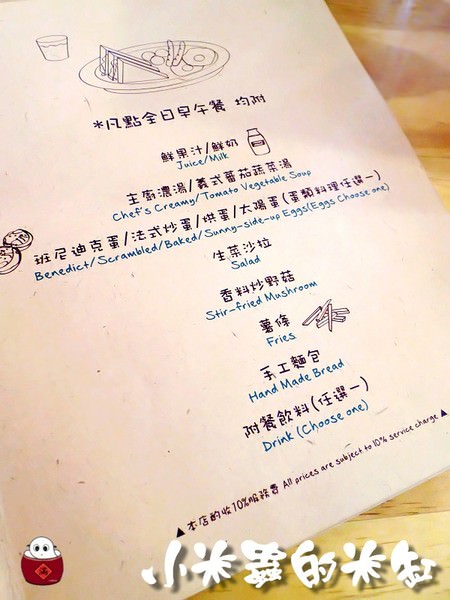 *凡點全日早午餐 均附
鮮果汁/鮮奶
Juice/Milk
主廚濃湯/義式蕃茄蔬菜湯
Chef's Creamy/Tomato Vegetable Soup
班尼迪克蛋/法式炒蛋/烘蛋/太陽蛋(蛋類料理任選一)
Benedict/Scrambled/Baked/Sunny-side-up Eggs(Eggs Choose one)
生菜沙拉
Salad
香料炒野菇
Stir-fried Mushroom
薯條
Fries
手工麵包
Hand Made Bread
附餐飲料(任選一)
Drink (Choose one)
▲本店酌收10%服務費 All prices are subject to 10% service charge▲
小米蟲的米缸